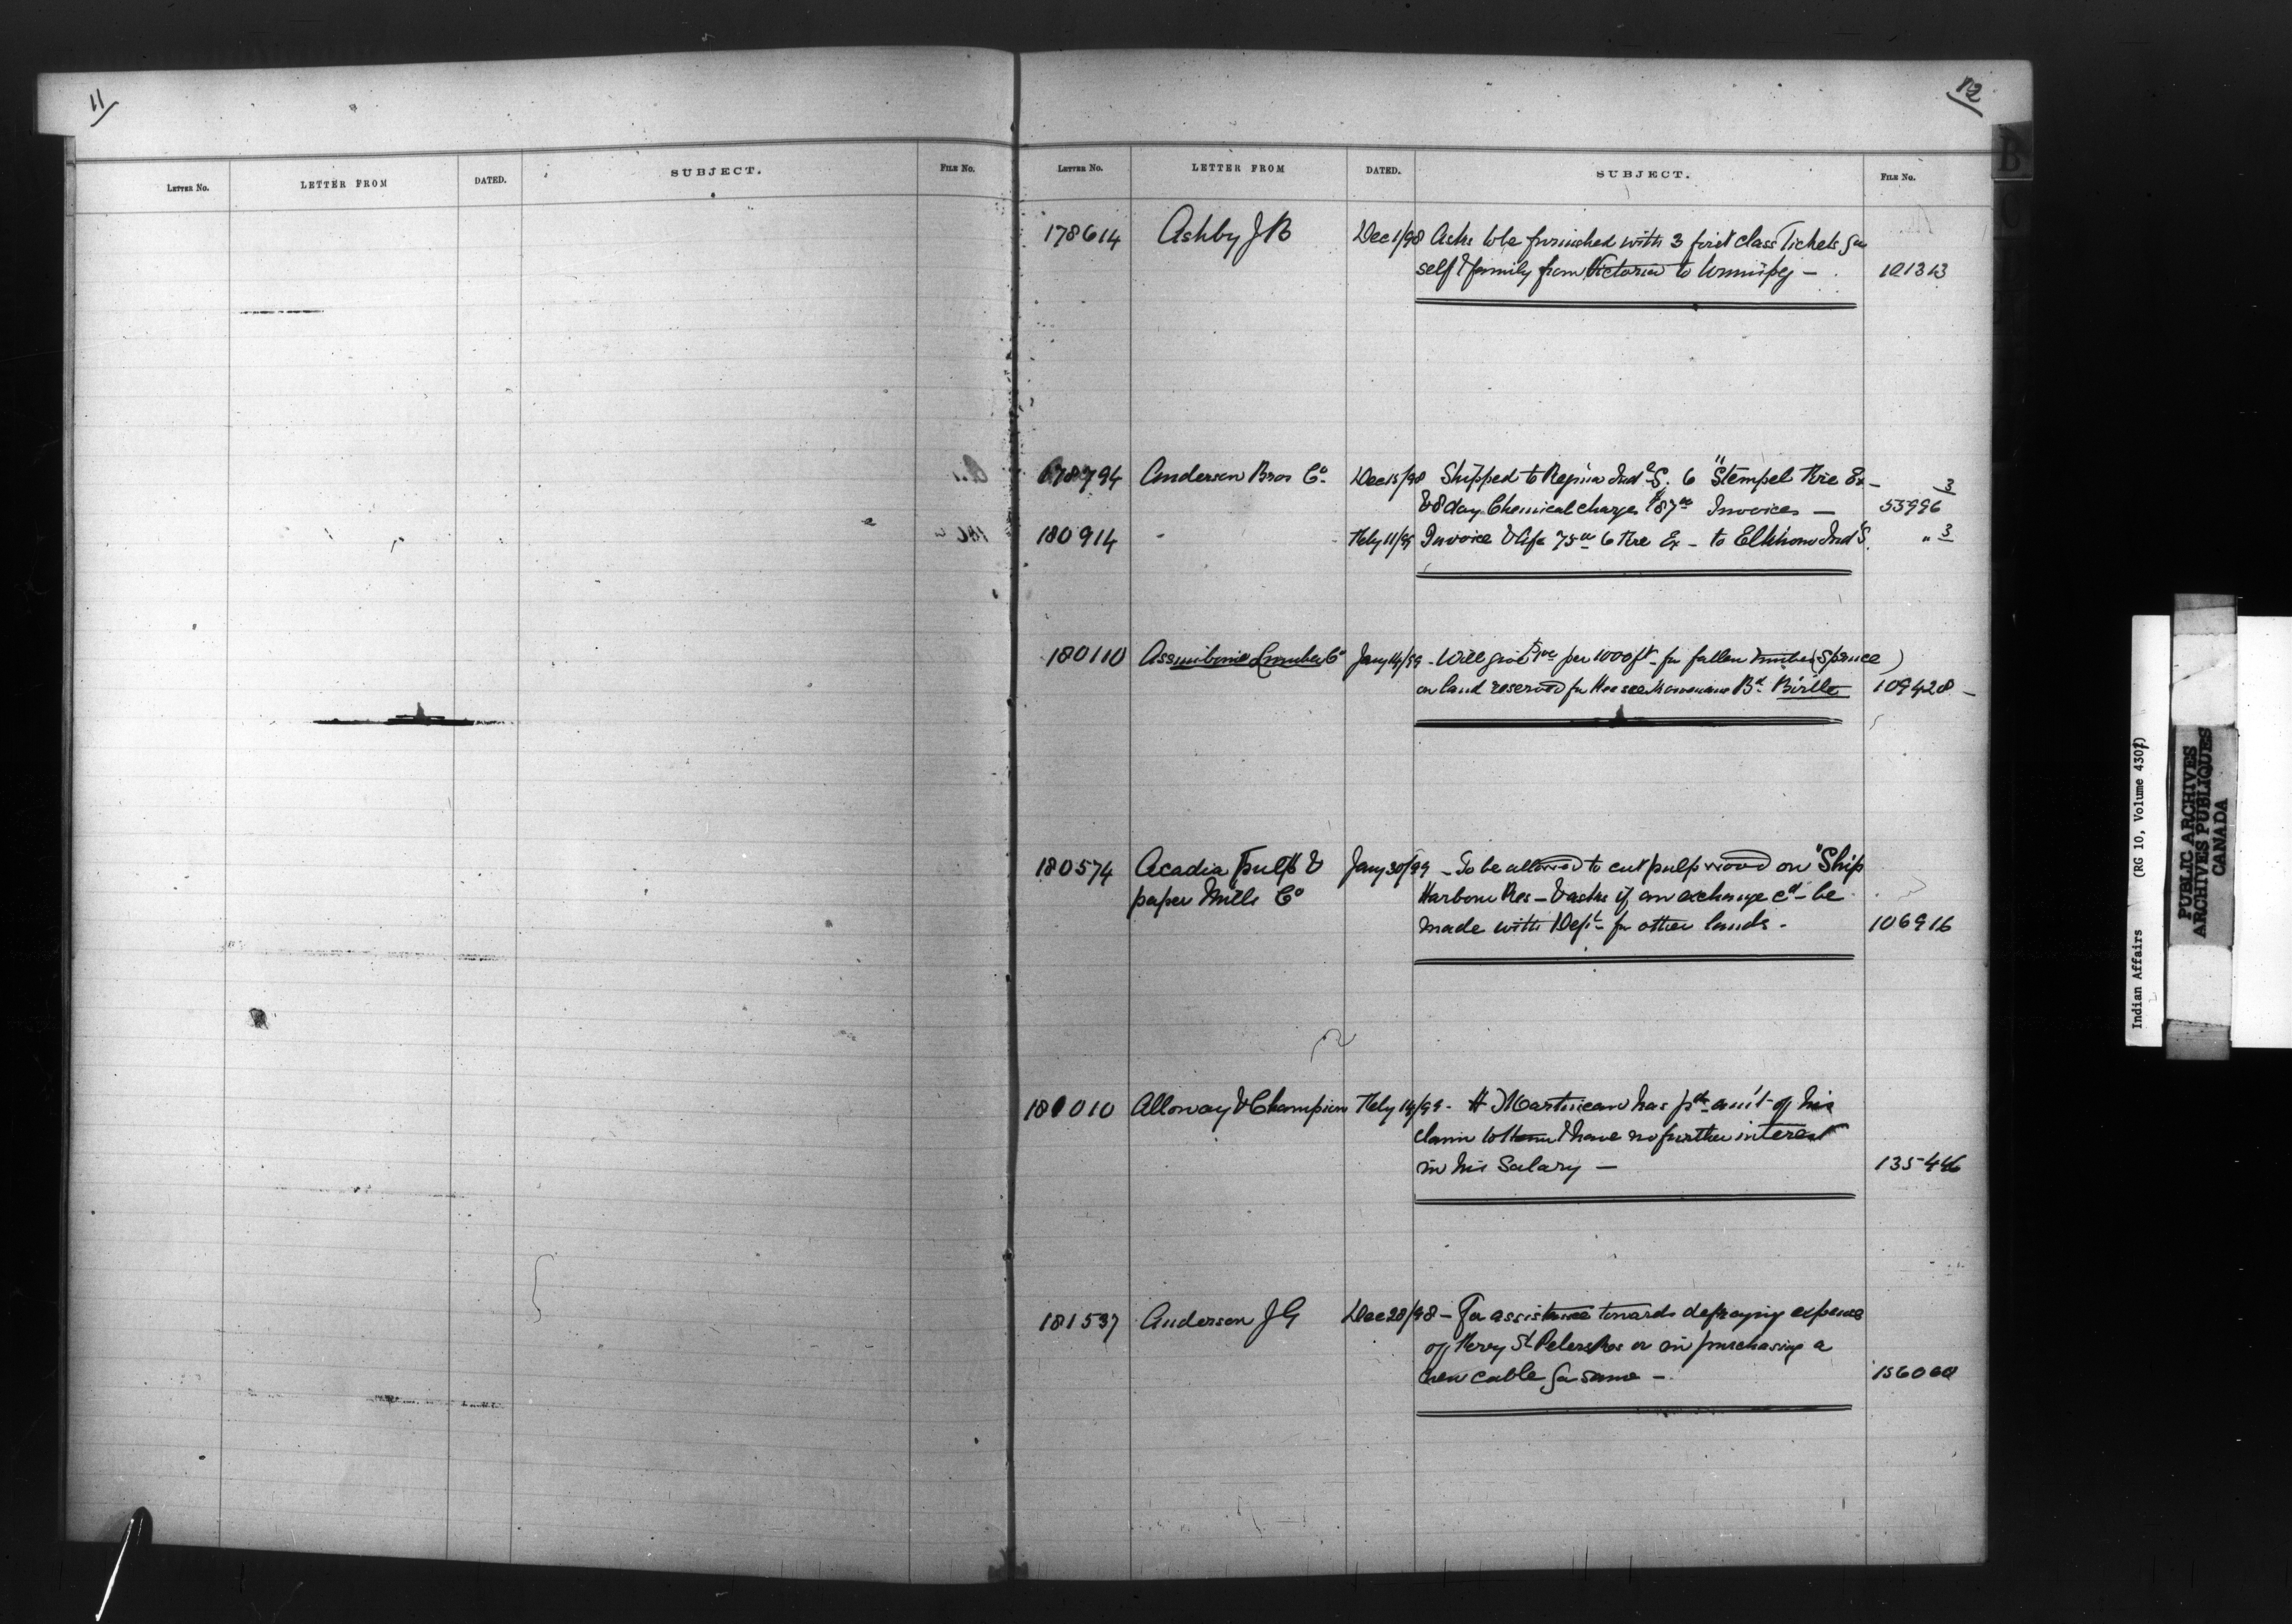 11
LETTER No. LETTER FROM DATED. SUBJECT. FILE No.
12
LETTER No. LETTER FROM DATED. SUBJECT. FILE No.
178614 Ashby J B Dec 1/98 Asks to be furnished with 3 first class Tickets for
self & family from Victoria to Winnipeg — 101313
178794 Anderson Bros Co Dec 15/98 Shipped to Regina Ind S. 6 "Stempel Fire Ex –
& 8 doz. Chemical charges $87 Invoices — 55996 3
180914 " Feby 11/99 Invoice 75 6 Fire Ex – to Elkhorn Ind S. " 3
180110 Assiniboine Lumber Co Jany 14/99 – Will give per 1000 ft for fallen timber (Spruce)
on land reserved for Bd. Birtle 109428 –
180574 Acadia pulp & Jany 30/99 – To be allowed to cut pulp wood on "Ship
paper Mills Co Harbour Res – & asks if an exchange cd be
made with Dept for other lands. 106916
181010 Alloway & Champion Feby 14/99 – H Martineau has pd am't of his
claim to them & have no further interest
in his Salary — 135446
181537 Anderson J G Dec 28/98 – For assistance towards defraying expense
of Ferry St Peters Res or in purchasing a
new cable for same – 156060
B
C
Indian Affairs (RG 10, Volume 4307)
PUBLIC ARCHIVES
ARCHIVES PUBLIQUES
CANADA